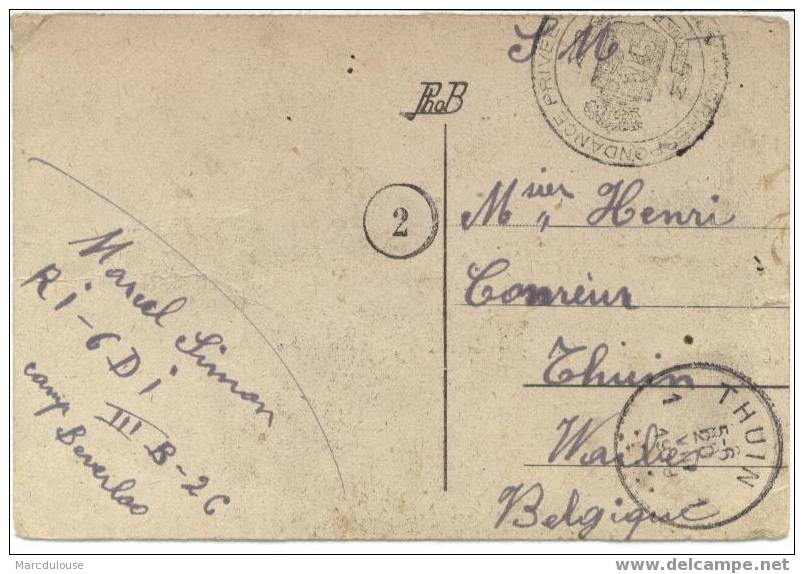 S M
CORRESPONDANCE PRIVÉE
PhoB
2
Msier Henri
Conreur
Thuin
Waibes
Belgique
THUIN
5-6
1
Marcel Simon
Ri-6Di
III B-2C
camp Beverloo
Marcdulouse
delcampe.net